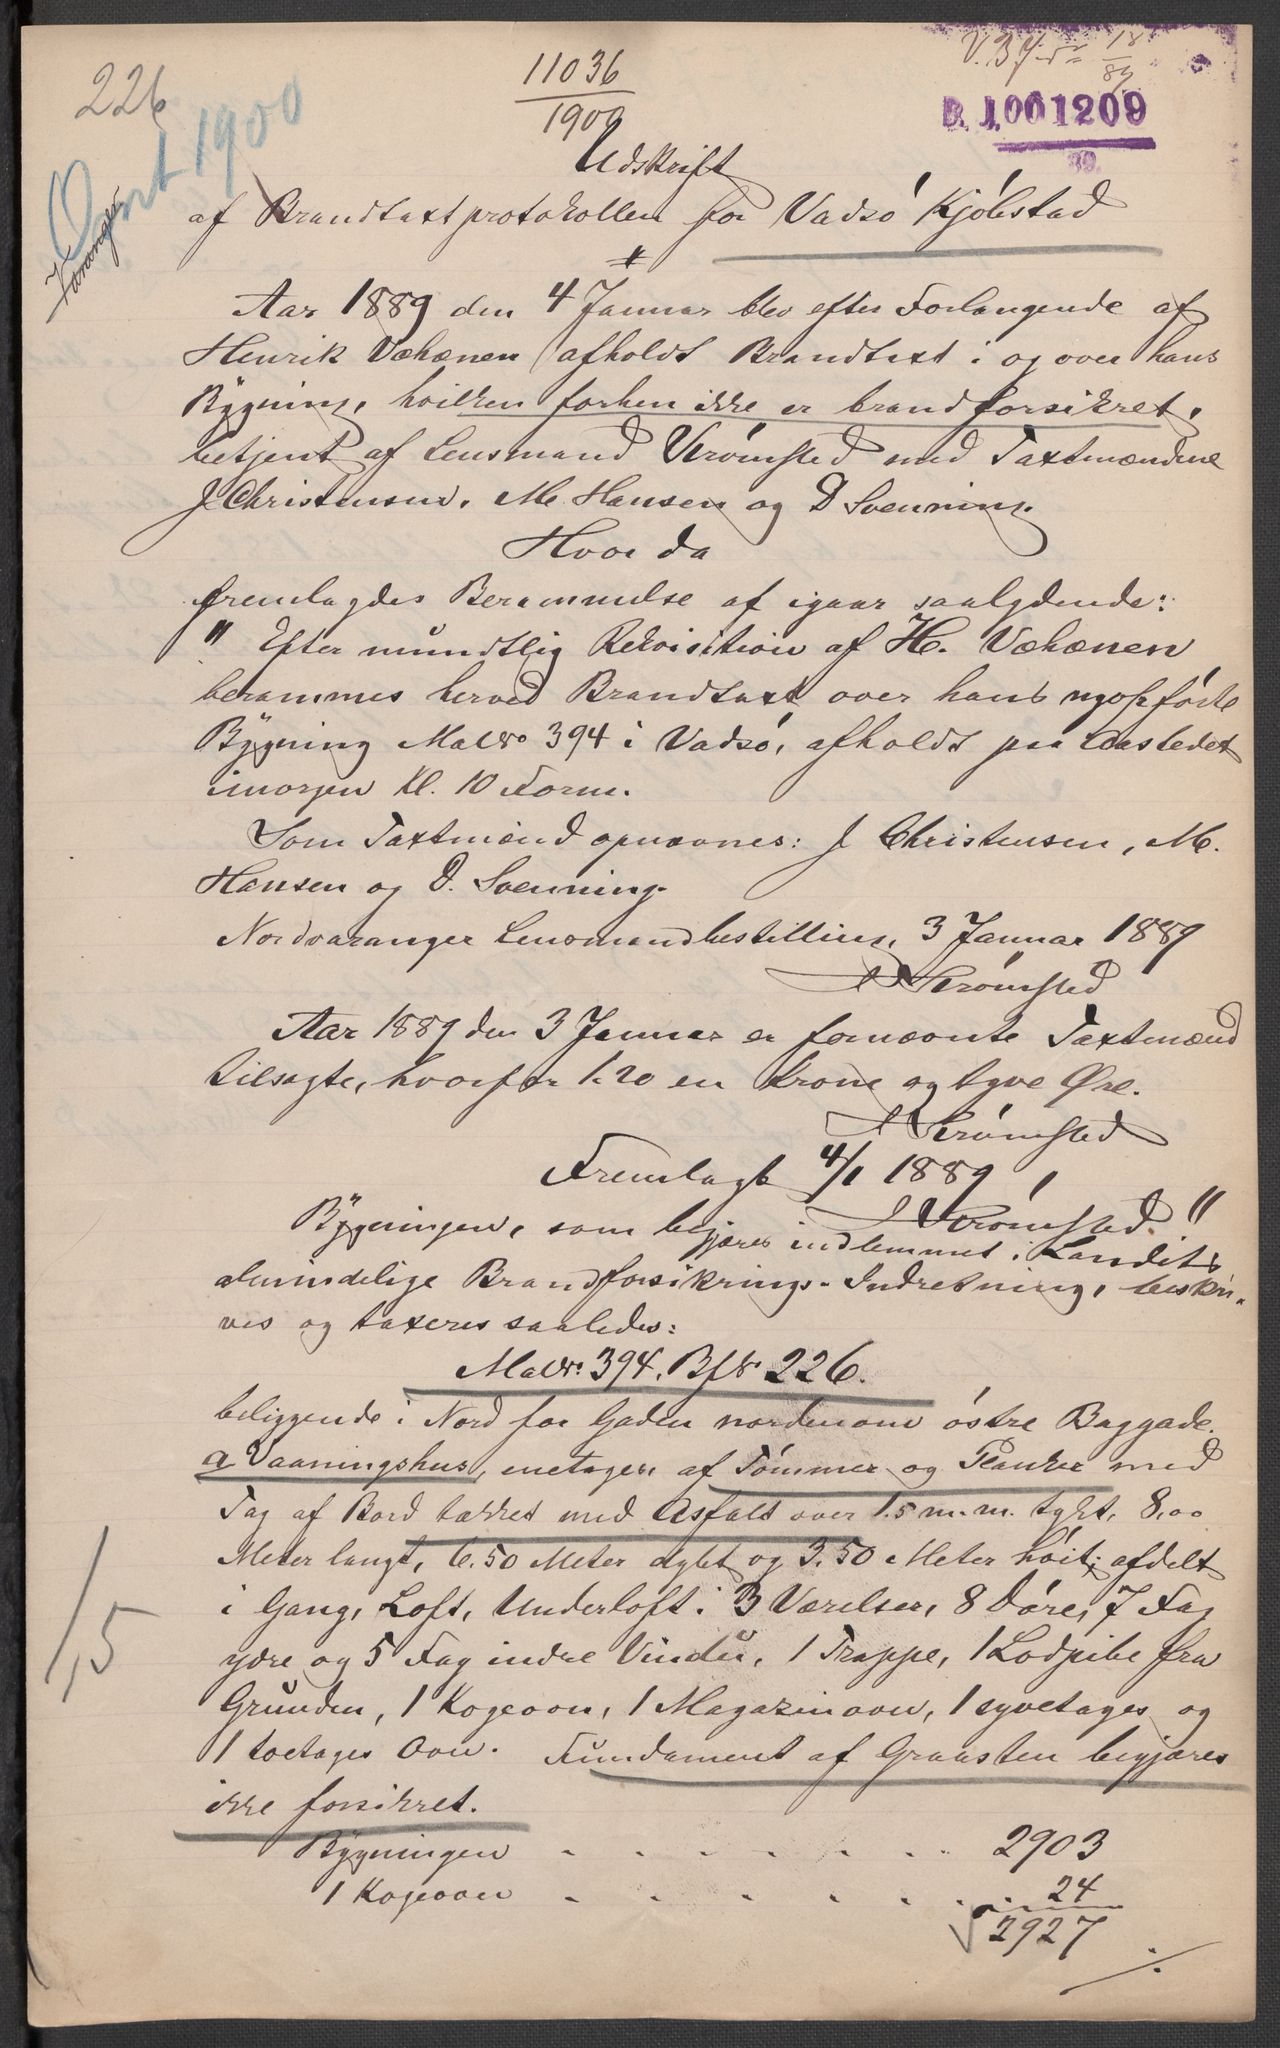 226
Omt 1900
Varanger
11036
1900
V. B. 18
89
B. J. 001209
89.
Udskrift
af Brandtaxtprotokollen for Vadsö Kjöbstad
Aar 1889 den 4 Januar blev efter Forlangende af
Henrik Væhænen afholdt Brandtaxt i og over hans
Bygning, hvilken forhen ikke er brandforsikret,
betjent af Lensmand Strömsted med Taxtmændene
J Christensen, M. Hansen og D Svenning.
Hvor da
fremlagdes Berammelse af igaar saalydende:
" Efter mundtlig Rekvisition af H. Væhænen
berammes herved Brandtaxt over hans nyopförte
Bygning MaNo 394 i Vadsö, afholdt paa Aastedet
imorgen Kl. 10 Form.
Som Taxtmænd opnævnes: J Christensen, M.
Hansen og D. Svenning.
Nordvaranger Lensmandbestilling, 3 Januar 1889
Strömsted
Aar 1889 den 3 Januar er fornævnte Taxtmænd
tilsagte, hvorfor 1.20 en Krone og tyve Øre.
Strömsted
Fremlagt 4/1 1889
Strömsted. "
Bygningen, som begjæres indlemmet i Landets
almindelige Brandforsikrings-Indretning, beskri-
ves og taxeres saaledes:
MaNo. 394. BfNo 226.
beliggende i Nord for Gaden nordenom östre Baggade.
a Vaaningshus, enetages af Tömmer og Planker med
Tag af Bord tækket med Asfalt over 1.5 m.m. tykt, 8,00
Meter langt, 6.50 Meter dybt og 3.50 Meter höit; afdelt
i Gang, Loft, Underloft i 3 Værelser, 8 Döre, 7 Fag
ydre og 5 Fag indre Vindu, 1 Trappe, 1 Lodpibe fra
Grunden, 1 Kogeovn, 1 Magazinovn, 1 syvetages og
1 toetages Ovn. Fundament af Graasten begjæres
ikke forsikret.
1,5
Bygningen . . . . . . 2903
1 Kogeovn . . . . . . 24
2927
./.